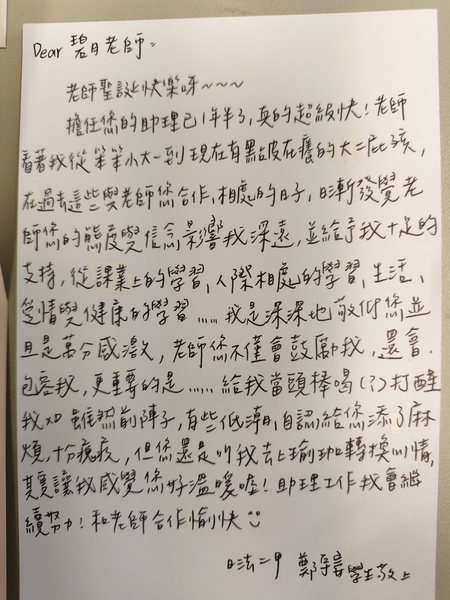 Dear 碧月老師：
老師聖誕快樂呀～～～
擔任您的助理已1年半了，真的超級快！老師
看著我從笨笨小大一到現在有點皮在癢的大二屁孩，
在過去這些與老師您合作，相處的日子，日漸發覺老
師您的態度與信念影響我深遠，並給予我十足的
支持，從課業上的學習，人際相處的學習，生活、
愛情與健康的學習……我是深深地敬仰您並
且是萬分感激，老師您不僅會鼓勵我，還會
包容我，更重要的是……給我當頭棒喝(?)打醒
我XD 雖然前陣子，有些低潮，自認給您添了麻
煩，十分愧疚，但您還是叫我去上瑜珈轉換心情，
其實讓我感覺您好溫暖喔！助理工作我會繼
續努力！和老師合作愉快
日法二甲 鄭 學生敬上